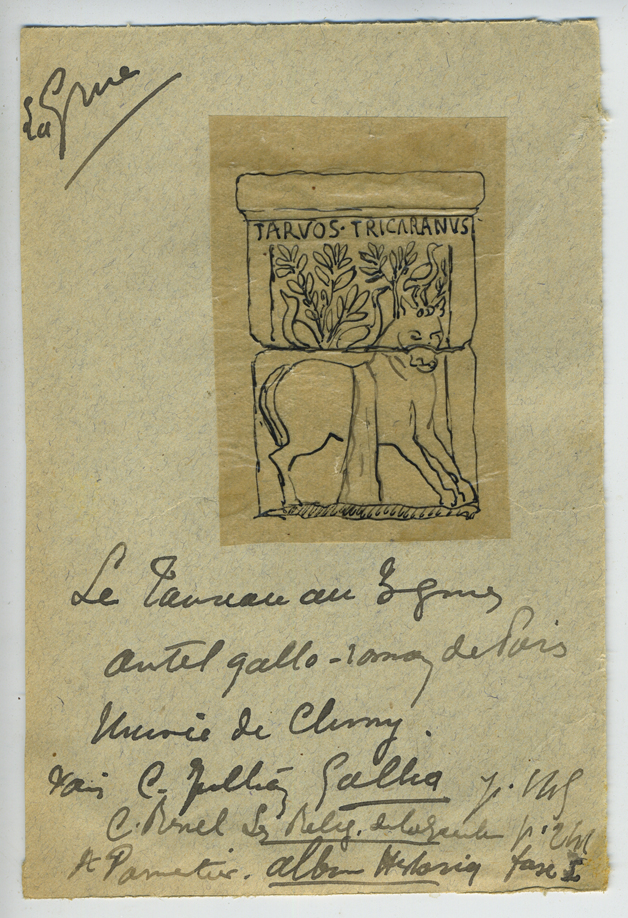 La Grue
TARVOS · TRICARANVS
Le Taureau au 3 grues
autel gallo-romain de Paris
Musée de Cluny.
voir C. Jullian Gallia p.
C. Renel Les Relig. de la Gaule p.
A Parmentier. album Historiq fasc I